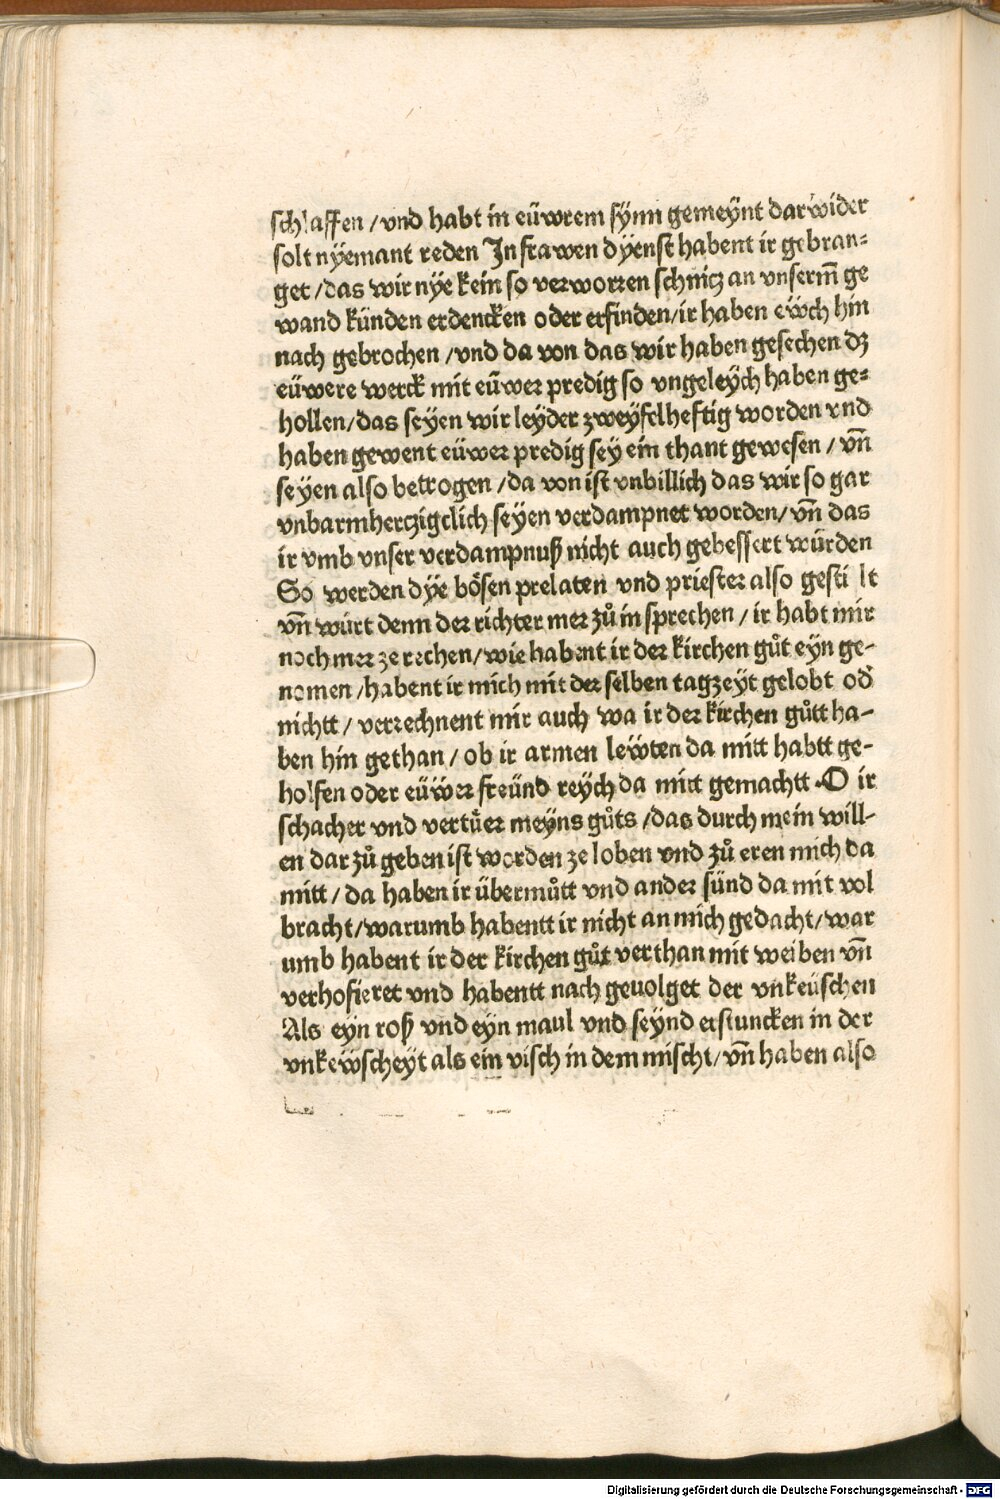 schlaffen /vnd habt in eüwrem sÿnn gemeÿnt dar wider
solt nÿemant reden In frawen dÿenst habent ir gebran⸗
get /das wir nÿe kein so verworren schnicz an vnserm̄ ge
wand künden erdencken oder erfinden/ir haben ewch hin
nach gebrochen /vnd da von das wir haben gesechen dz
eüwere werck mit eüwer predig so vngeleÿch haben ge⸗
hollen/das seÿen wir leÿder zweÿfelheftig worden vnd
haben gewent eüwer predig seÿ ein thant gewesen / vn̄
seÿen also betrogen /da von ist vnbillich das wir so gar
vnbarmherczigclich seÿen verdampnet worden/ vn̄ das
ir vmb vnser verdampnuß nicht auch gebessert würden
So werden dÿe boͤsen prelaten vnd priester also gesti lt
vn̄ würt denn der richter mer zuͦ in sprechen / ir habt mir
noch mer ze rechen/wie habent ir der kirchen guͦt eÿn ge-
nomen /habent ir mich mit der selben tagzeÿt gelobt od̕
nichtt / verrechnent mir auch wa ir der kirchen guͦtt ha-
ben hin gethan / ob ir armen leẅten da mitt habtt ge-
holfen oder eüẅer freünd reÿch da mitt gemachtt ·O ir
schacher vnd vertüer meÿns guͦts /das durch mein will-
en dar zuͦ geben ist worden ze loben vnd zuͦ eren mich da
mitt / da haben ir übermuͦtt vnd ander sünd da mit vol
bracht/warumb habentt ir nicht an mich gedacht/war
umb habent ir der kirchen guͦt verthan mit weiben vn̄
verhofieret vnd habentt nach geuolget der vnkeüschen
Als eÿn roß vnd eÿn maul vnd seÿnd erstuncken in der
vnkeẅscheÿt als ein visch in dem mischt/ vn̄ haben also
Digitalisierung gefördert durch die Deutsche Forschungsgemeinschaft - DFG